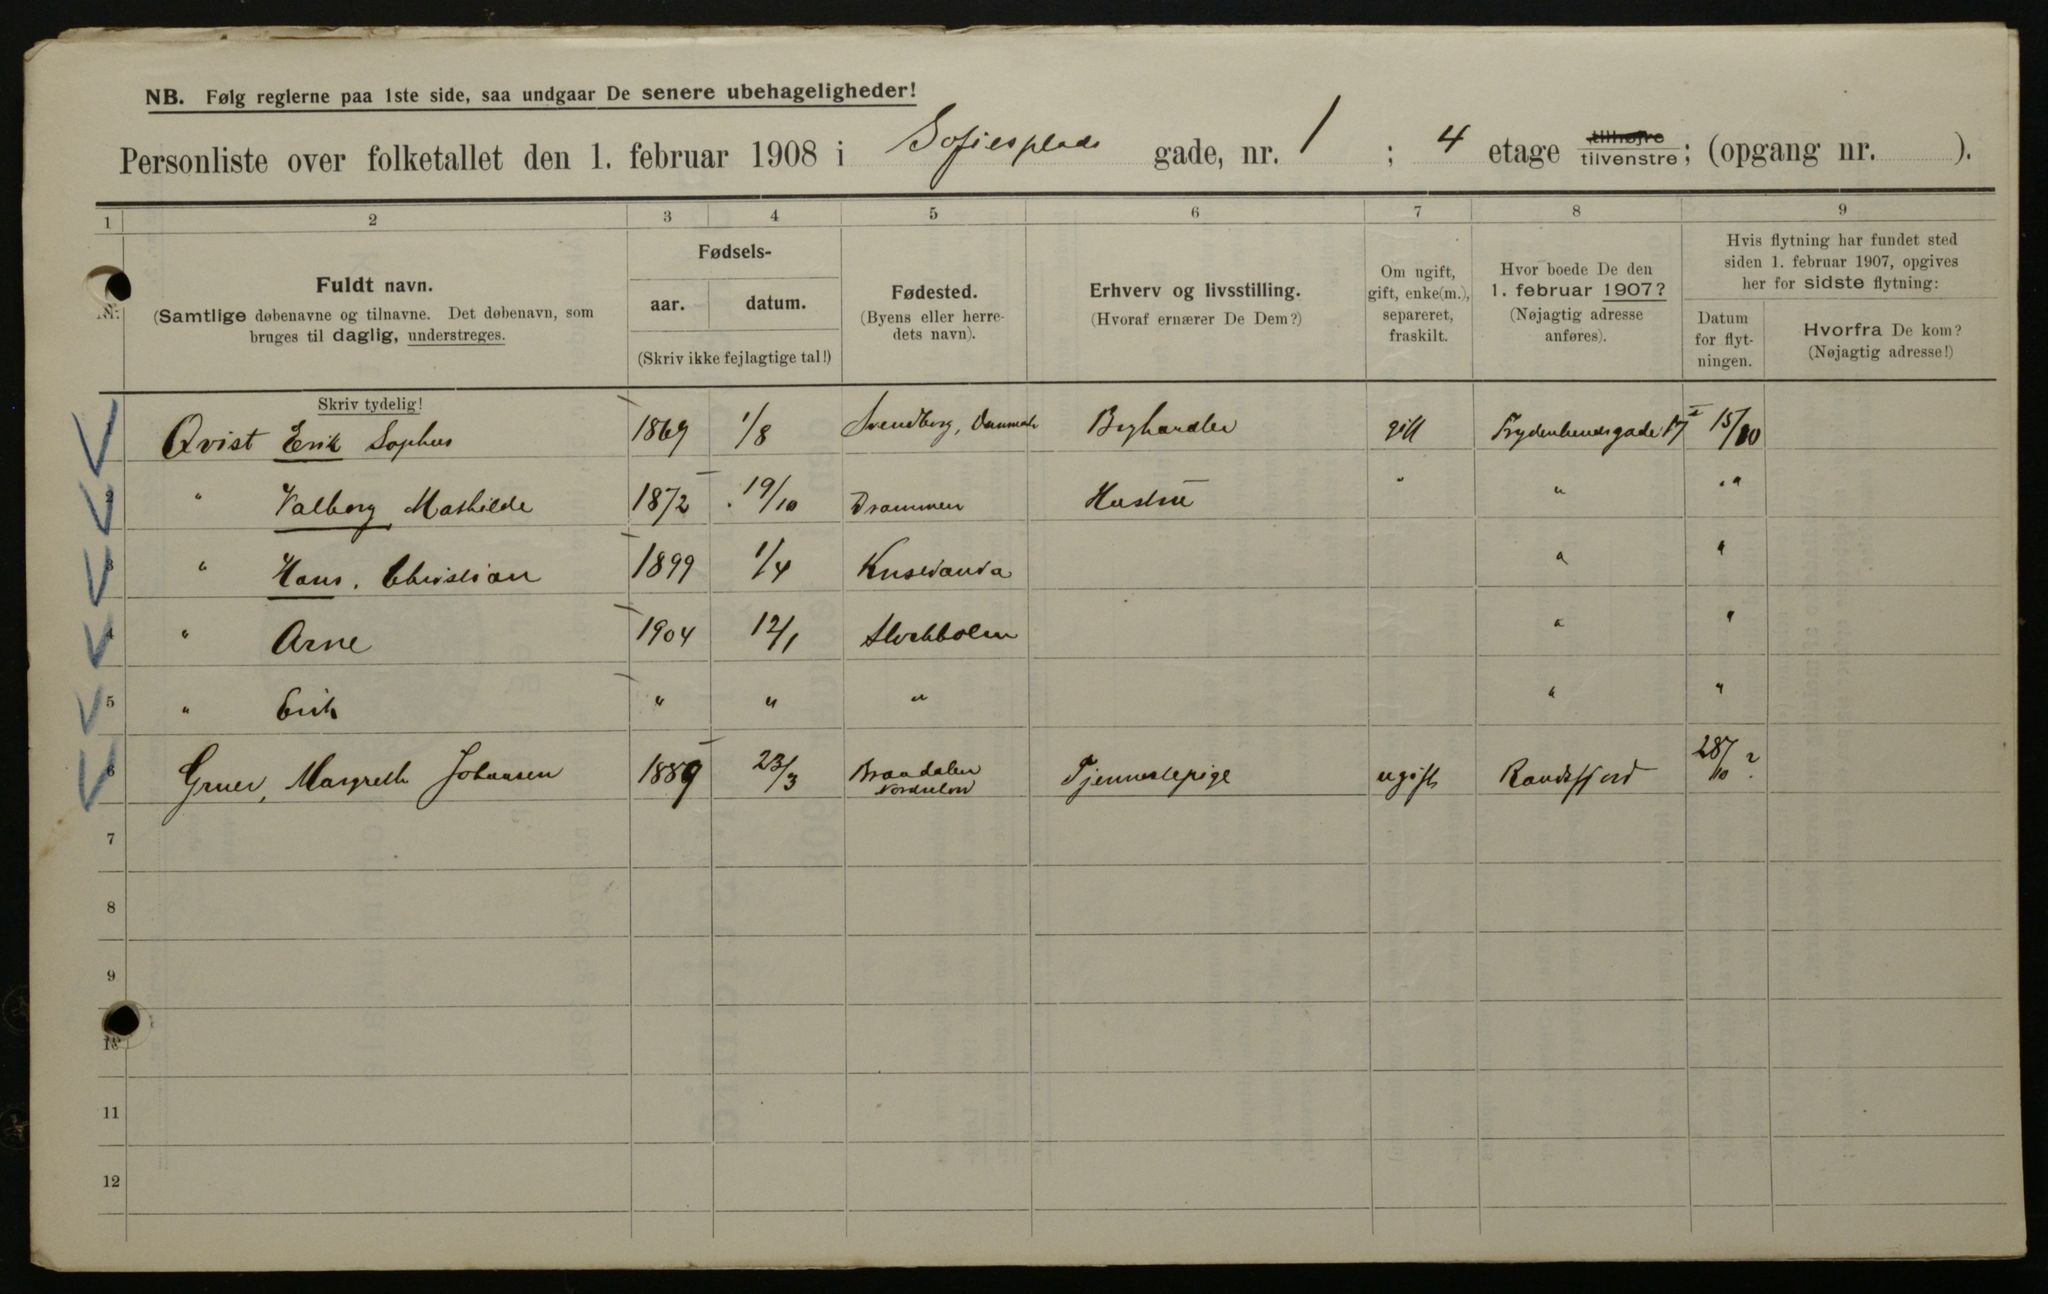 NB. Følg reglerne paa 1ste side, saa undgaar De senere ubehageligheder!
Personliste over folketallet den 1. februar 1908 i Sofiesplads gade, nr. 1 ; 4 etage tilhøjre tilvenstre; (opgang nr. ).
1 2 3 4 5 6 7 8 9
Nr.
Fuldt navn.
(Samtlige døbenavne og tilnavne. Det døbenavn, som
bruges til daglig, understreges.
Skriv tydelig!
Fødsels-
aar. datum.
(Skriv ikke fejlagtige tal!)
Fødested.
(Byens eller herre-
dets navn).
Erhverv og livsstilling.
(Hvoraf ernærer De Dem?)
Om ugift,
gift, enke(m.),
separeret,
fraskilt.
Hvor boede De den
1. februar 1907?
(Nøjagtig adresse
anføres).
Hvis flytning har fundet sted
siden 1. februar 1907, opgives
her for sidste flytning:
Datum
for flyt-
ningen.
Hvorfra De kom?
(Nøjagtig adresse!)
Qvist Erik Sophus 1869 1/8 Svendborg, Danmark gift 15/10
2 " Valborg Mathilde 1872 19/10 Drammen Hustru " " "
3 " Hans Christian 1899 1/4 " "
4 " Arne 1904 12/1 Stockholm " "
5 " Erik " " " " "
6 Margreth Johansen 1889 23/3 Tjenestepige ugift Randsfjord
7
8
9
10
11
12